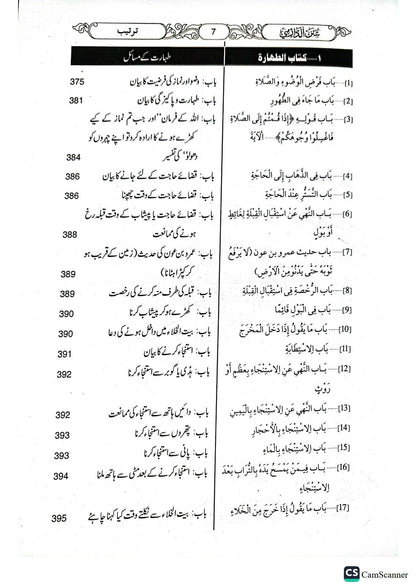 سنن الدارمی 7 ترتیب
۱- کتاب الطھارة طہارت کے مسائل
[1]— بَاب فَرْضِ الْوُضُوءِ وَالصَّلَاةِ باب: وضو اور نماز کی فرضیت کا بیان 375
[2]— بَاب مَا جَاءَ فِي الطُّهُورِ باب: طہارت و پاکیزگی کا بیان 381
[3]— بَاب قَوْلِهِ ﴿إِذَا قُمْتُمْ إِلَى الصَّلَاةِ باب: اللہ کے فرمان ”اور جب تم نماز کے لیے
فَاغْسِلُوا وُجُوهَكُمْ﴾— الْآيَةَ کھڑے ہونے کا ارادہ کرو تو اپنے چہروں کو
دھولو“ کی تفسیر 384
[4]— بَاب فِي الذَّهَابِ إِلَى الْحَاجَةِ باب: قضائے حاجت کے لئے جانے کا بیان 386
[5]— بَاب التَّسَتُّرِ عِنْدَ الْحَاجَةِ باب: قضائے حاجت کے وقت چھپنا 386
[6]— بَاب النَّهْيِ عَنْ اسْتِقْبَالِ الْقِبْلَةِ لِغَائِطٍ باب: قضائے حاجت یا پیشاب کے وقت قبلہ رخ
أَوْ بَوْلٍ ہونے کی ممانعت 388
[7]— بَاب حديث عمرو بن عون (لا يَرْفَعُ باب: عمرو بن عون کی حدیث (زمین کے قریب ہو
ثَوْبَهُ حَتَّى يَدْنُوَ مِنَ الْأَرْضِ) کر کپڑا ہٹانا) 389
[8]— بَاب الرُّخْصَةِ فِي اسْتِقْبَالِ الْقِبْلَةِ باب: قبلہ کی طرف منہ کرنے کی رخصت 389
[9]— بَاب فِي الْبَوْلِ قَائِمًا باب: کھڑے ہو کر پیشاب کرنا 390
[10]— بَاب مَا يَقُولُ إِذَا دَخَلَ الْمَخْرَجَ باب: بیت الخلاء میں داخل ہونے کی دعا 390
[11]— بَاب الِاسْتِطَابَةِ باب: استنجاء کرنے کا بیان 391
[12]— بَاب النَّهْيِ عَنِ الِاسْتِنْجَاءِ بِعَظْمٍ أَوْ باب: ہڈی یا گوبر سے استنجاء کرنا
رَوْثٍ
[13]— بَاب النَّهْيِ عَنِ الِاسْتِنْجَاءِ بِالْيَمِينِ باب: دائیں ہاتھ سے استنجاء کی ممانعت 392
[14]— بَاب الِاسْتِنْجَاءِ بِالْأَحْجَارِ باب: پتھروں سے استنجاء کرنا 393
[15]— بَاب الِاسْتِنْجَاءِ بِالْمَاءِ باب: پانی سے استنجاء کرنا 393
[16]— بَاب فِيمَنْ يَمْسَحُ يَدَهُ بِالتُّرَابِ بَعْدَ باب: استنجاء کرنے کے بعد مٹی سے ہاتھ ملنا 394
الِاسْتِنْجَاءِ
[17]— بَاب مَا يَقُولُ إِذَا خَرَجَ مِنَ الْخَلَاءِ باب: بیت الخلاء سے نکلتے وقت کیا کہنا چاہئے 395
CS CamScanner